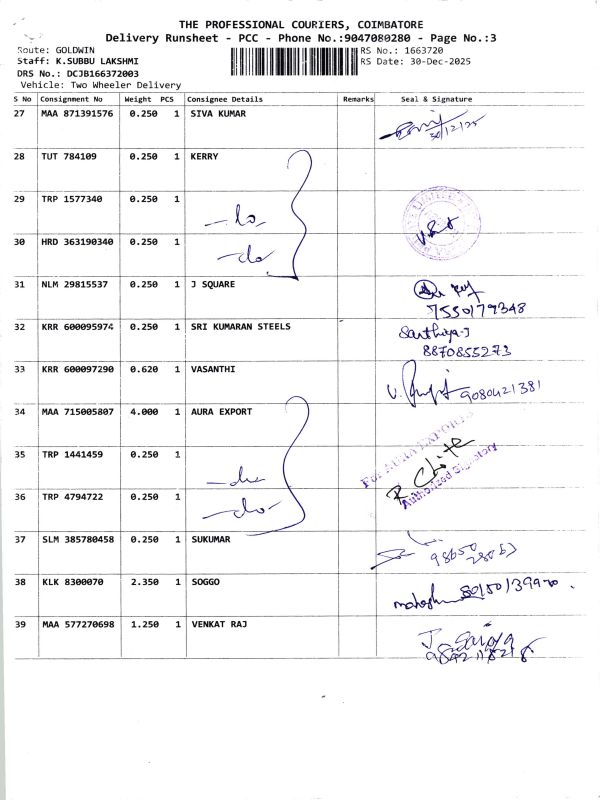 THE PROFESSIONAL COURIERS, COIMBATORE
Delivery Runsheet - PCC - Phone No.:9047080280 - Page No.:3
Route: GOLDWIN
RS No.: 1663720
Staff: K.SUBBU LAKSHMI
RS Date: 30-Dec-2025
DRS No.: DCJB166372003
Vehicle: Two Wheeler Delivery
S No Consignment No Weight PCS Consignee Details Remarks Seal & Signature
27 MAA 871391576 0.250 1 SIVA KUMAR 30/12/25
28 TUT 784109 0.250 1 KERRY
29 TRP 1577340 0.250 1 -do-
30 HRD 363190340 0.250 1 -do-
31 NLM 29815537 0.250 1 J SQUARE
7550179348
32 KRR 600095974 0.250 1 SRI KUMARAN STEELS Santhiya-J
8870855273
33 KRR 600097290 0.620 1 VASANTHI 9080421381
34 MAA 715005807 4.000 1 AURA EXPORT
For AURA EXPORTS
35 TRP 1441459 0.250 1 -do-
Authorised Signatory
36 TRP 4794722 0.250 1 -do-
37 SLM 385780458 0.250 1 SUKUMAR 98650
38 KLK 8300070 2.350 1 SOGGO
39 MAA 577270698 1.250 1 VENKAT RAJ